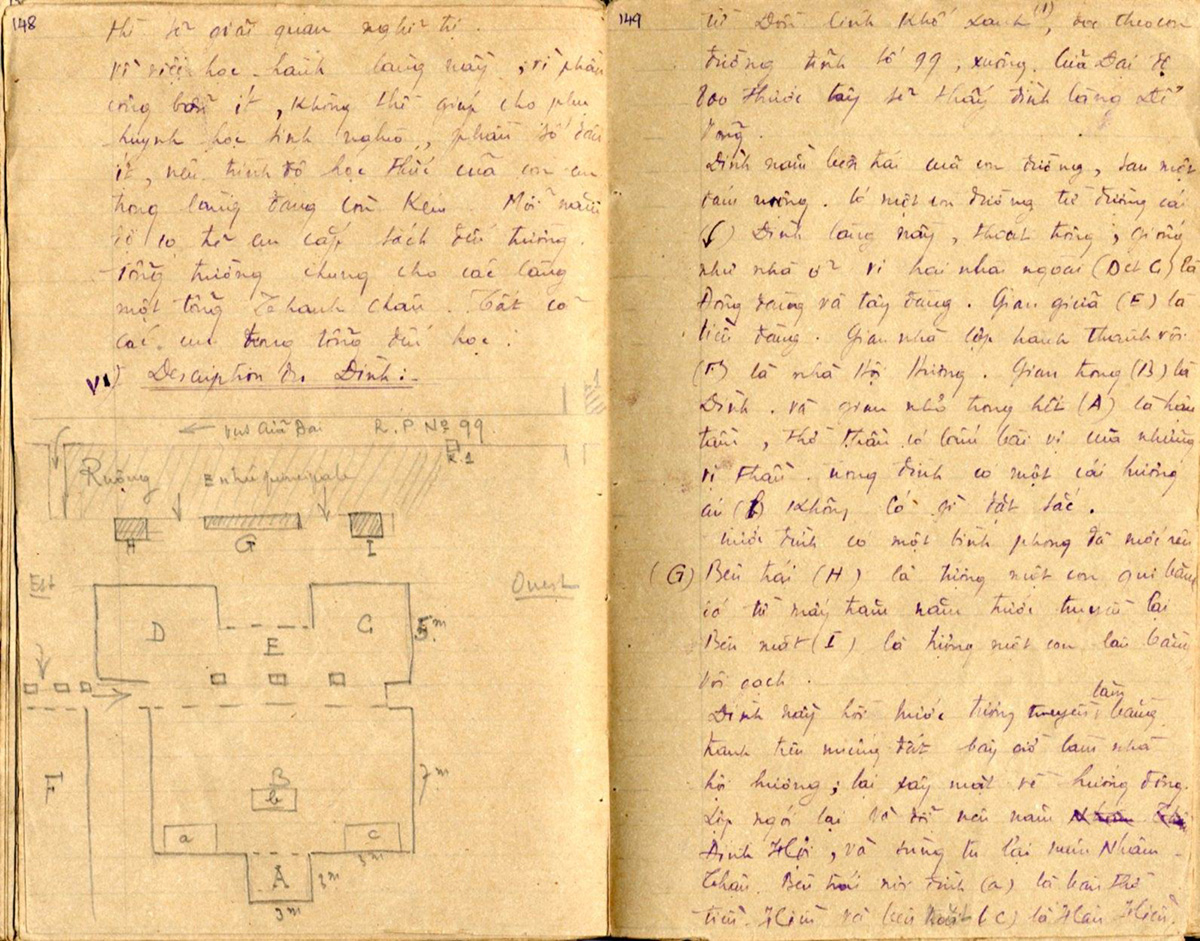 148
thì sẽ giải quan nghĩ trị.
Về việc học hành làng này, vì phần
công bổn ít, không thể giúp cho phụ
huynh học sinh nghèo, phần số dân
ít, nên trình độ học thức của con em
trong làng đang còn kém. Mỗi năm
chỉ có thể em cấp sách đến trường.
Tổng trường chung cho các làng
một tổng Thanh Chân. Tất cả
các em trong tổng đến học.
VI) Description du Đình:
← vers Cửa Đại R.P Nº 99
K.1
Ruộng Entrée principale
H G I
Est Ouest
D E C 5m
F B 7m
b
a c
3m
A 2m
3m
149
từ Đồn lính Khố xanh (1), dọc theo con
đường tỉnh số 99, xuống Cửa Đại độ
800 thước tây sẽ thấy đình làng Đế
Võng.
Đình nằm bên trái của con đường, sau một
đám ruộng. Có một con đường từ đường cái
(↓) Đình làng này, thoạt trông, giống
như nhà ở vì hai nhà ngoài (D et C) là
Đông đàng và tây đàng. Gian giữa (E) là
tiền đàng. Gian nhà lập hành thành với
(F) là nhà Hội Hương. Gian trong (B) là
Đình. Và gian nhỏ trong hết (A) là hậu
tẩm, thờ thần có bốn bài vị của những
vị thần. Trong đình có một cái hương
án (b) không có gì đặt sắc.
Trước đình có một bình phong đã mới nên
(G) Bên trái (H) là tượng một con qui bằng
đá từ mấy trăm năm trước truyền lại
Bên mặt (I) là tượng một con lân bằng
vôi gạch.
Đình này hồi trước tương truyền làm bằng
tranh trên miếng đất bây giờ làm nhà
hội hương, lại xây mặt về hướng đông.
Lợp ngói lại và dời nên năm
Đinh Hợi, và trùng tu lại năm Nhâm
Thân. Bên trái nơi đình (a) là bàn thờ
tiền Hiền và bên mặt (c) là Hậu Hiền.